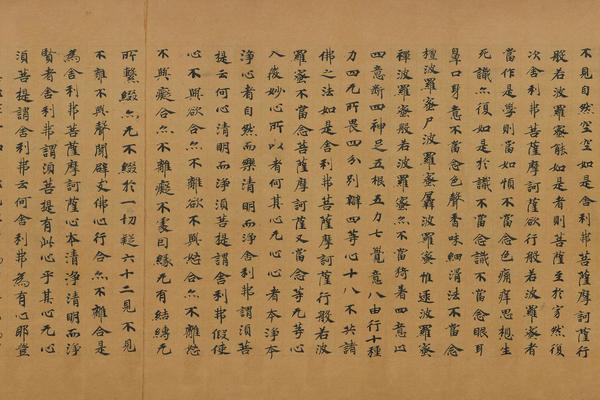 不見自然空空如是舍利弗菩薩摩訶薩行
般若波羅蜜能如是者則菩薩至於方然後
次舍利弗菩薩摩訶薩欲行般若波羅蜜者
當作是學則當如慎不當念色痛痒思想生
死識亦復如是於識不當念識不當念眼耳
鼻口身意不當念色聲香味細滑法不當念
檀波羅蜜尸波羅蜜羼波羅蜜惟逮波羅蜜
禪波羅蜜般若波羅蜜亦不當猗著四意止
四意斷四神足五根五力七覺意八由行十種
力四无所畏四分別辯四等心十八不共諸
佛之法如是舍利弗菩薩摩訶薩行般若波
羅蜜不當念菩薩又當念等无等心
入微妙心所以者何其心无心心者本淨本
淨心者自然而樂清明而淨舍利弗謂須菩
提云何心清明而淨須菩提謂舍利弗假使
心不與欲合亦不離欲不與怒合亦不離怒
不與癡合亦不離癡不處因緣无有結縛无
所繫綴亦无不綴於一切疑六十二見不見
不離不與聲聞辟支佛心行合亦不離合是
為舍利弗菩薩摩訶薩心本清淨清明而淨
賢者舍利弗謂須菩提有此心乎其心无心
須菩提謂舍利弗云何舍利弗為有心耶豈